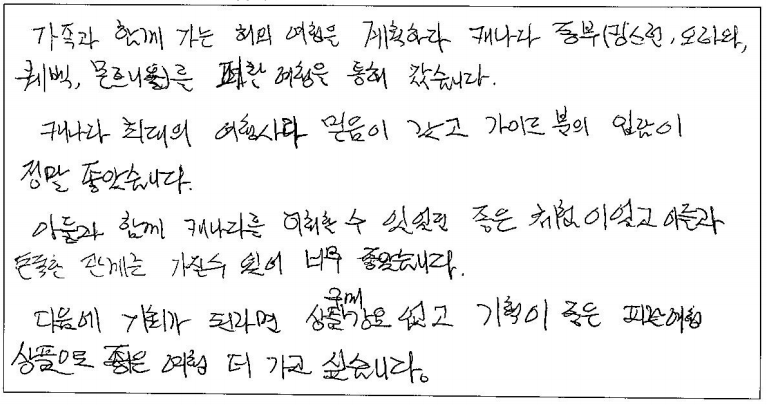 가족과 함께 가는 해외 여행을 계획하다 캐나다 동부(킹스턴, 오타와,
퀘벡, 몬트리올)를 파란 여행을 통해 갔습니다.
캐나다 최대의 여행사라 믿음이 갔고 가이드 분의 입담이
정말 좋았습니다.
아들과 함께 캐나다를 이해할 수 있었던 좋은 체험이었고 아들과
돈독한 관계를 가질수 있어 너무 좋았습니다.
다음에 기회가 된다면 상품 구매 강요 없고 기획이 좋은 파란여행
상품으로 좋은 여행 더 가고 싶습니다.